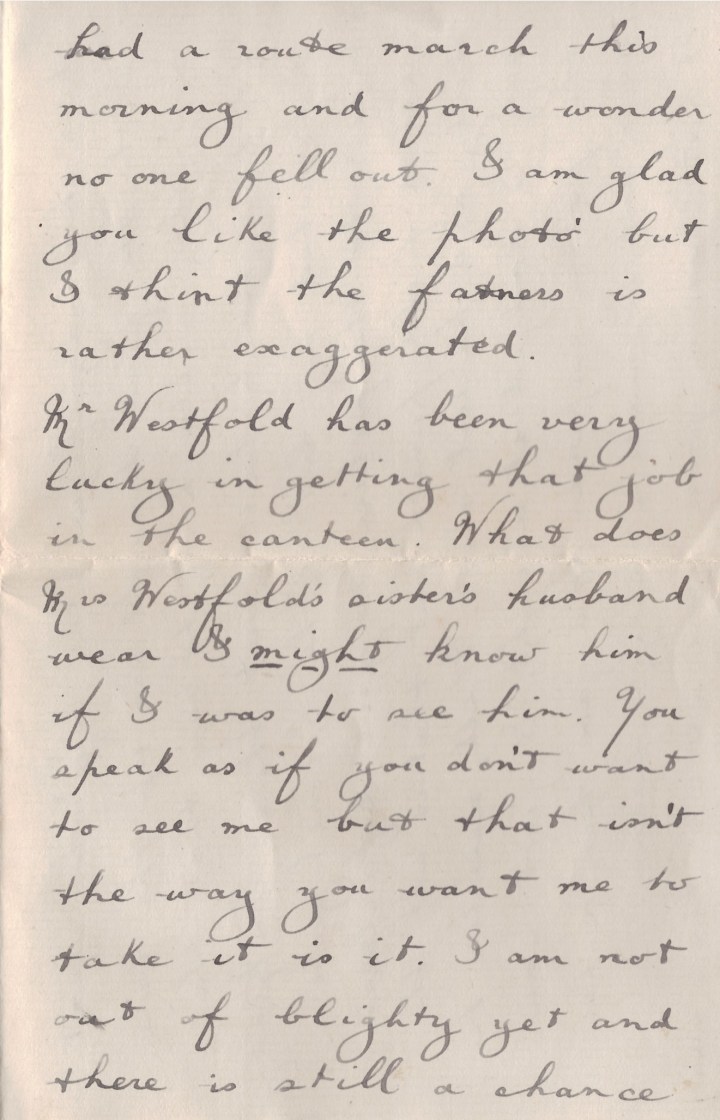 had a route march this
morning and for a wonder
no one fell out. I am glad
you like the photo but
I think the fatness is
rather exaggerated.
Mr Westfold has been very
lucky in getting that job
in the canteen. What does
Mrs Westfold's sister's husband
wear I might know him
if I was to see him. You
speak as if you don't want
to see me but that isn't
the way you want me to
take it is it. I am not
out of blighty yet and
there is still a chance